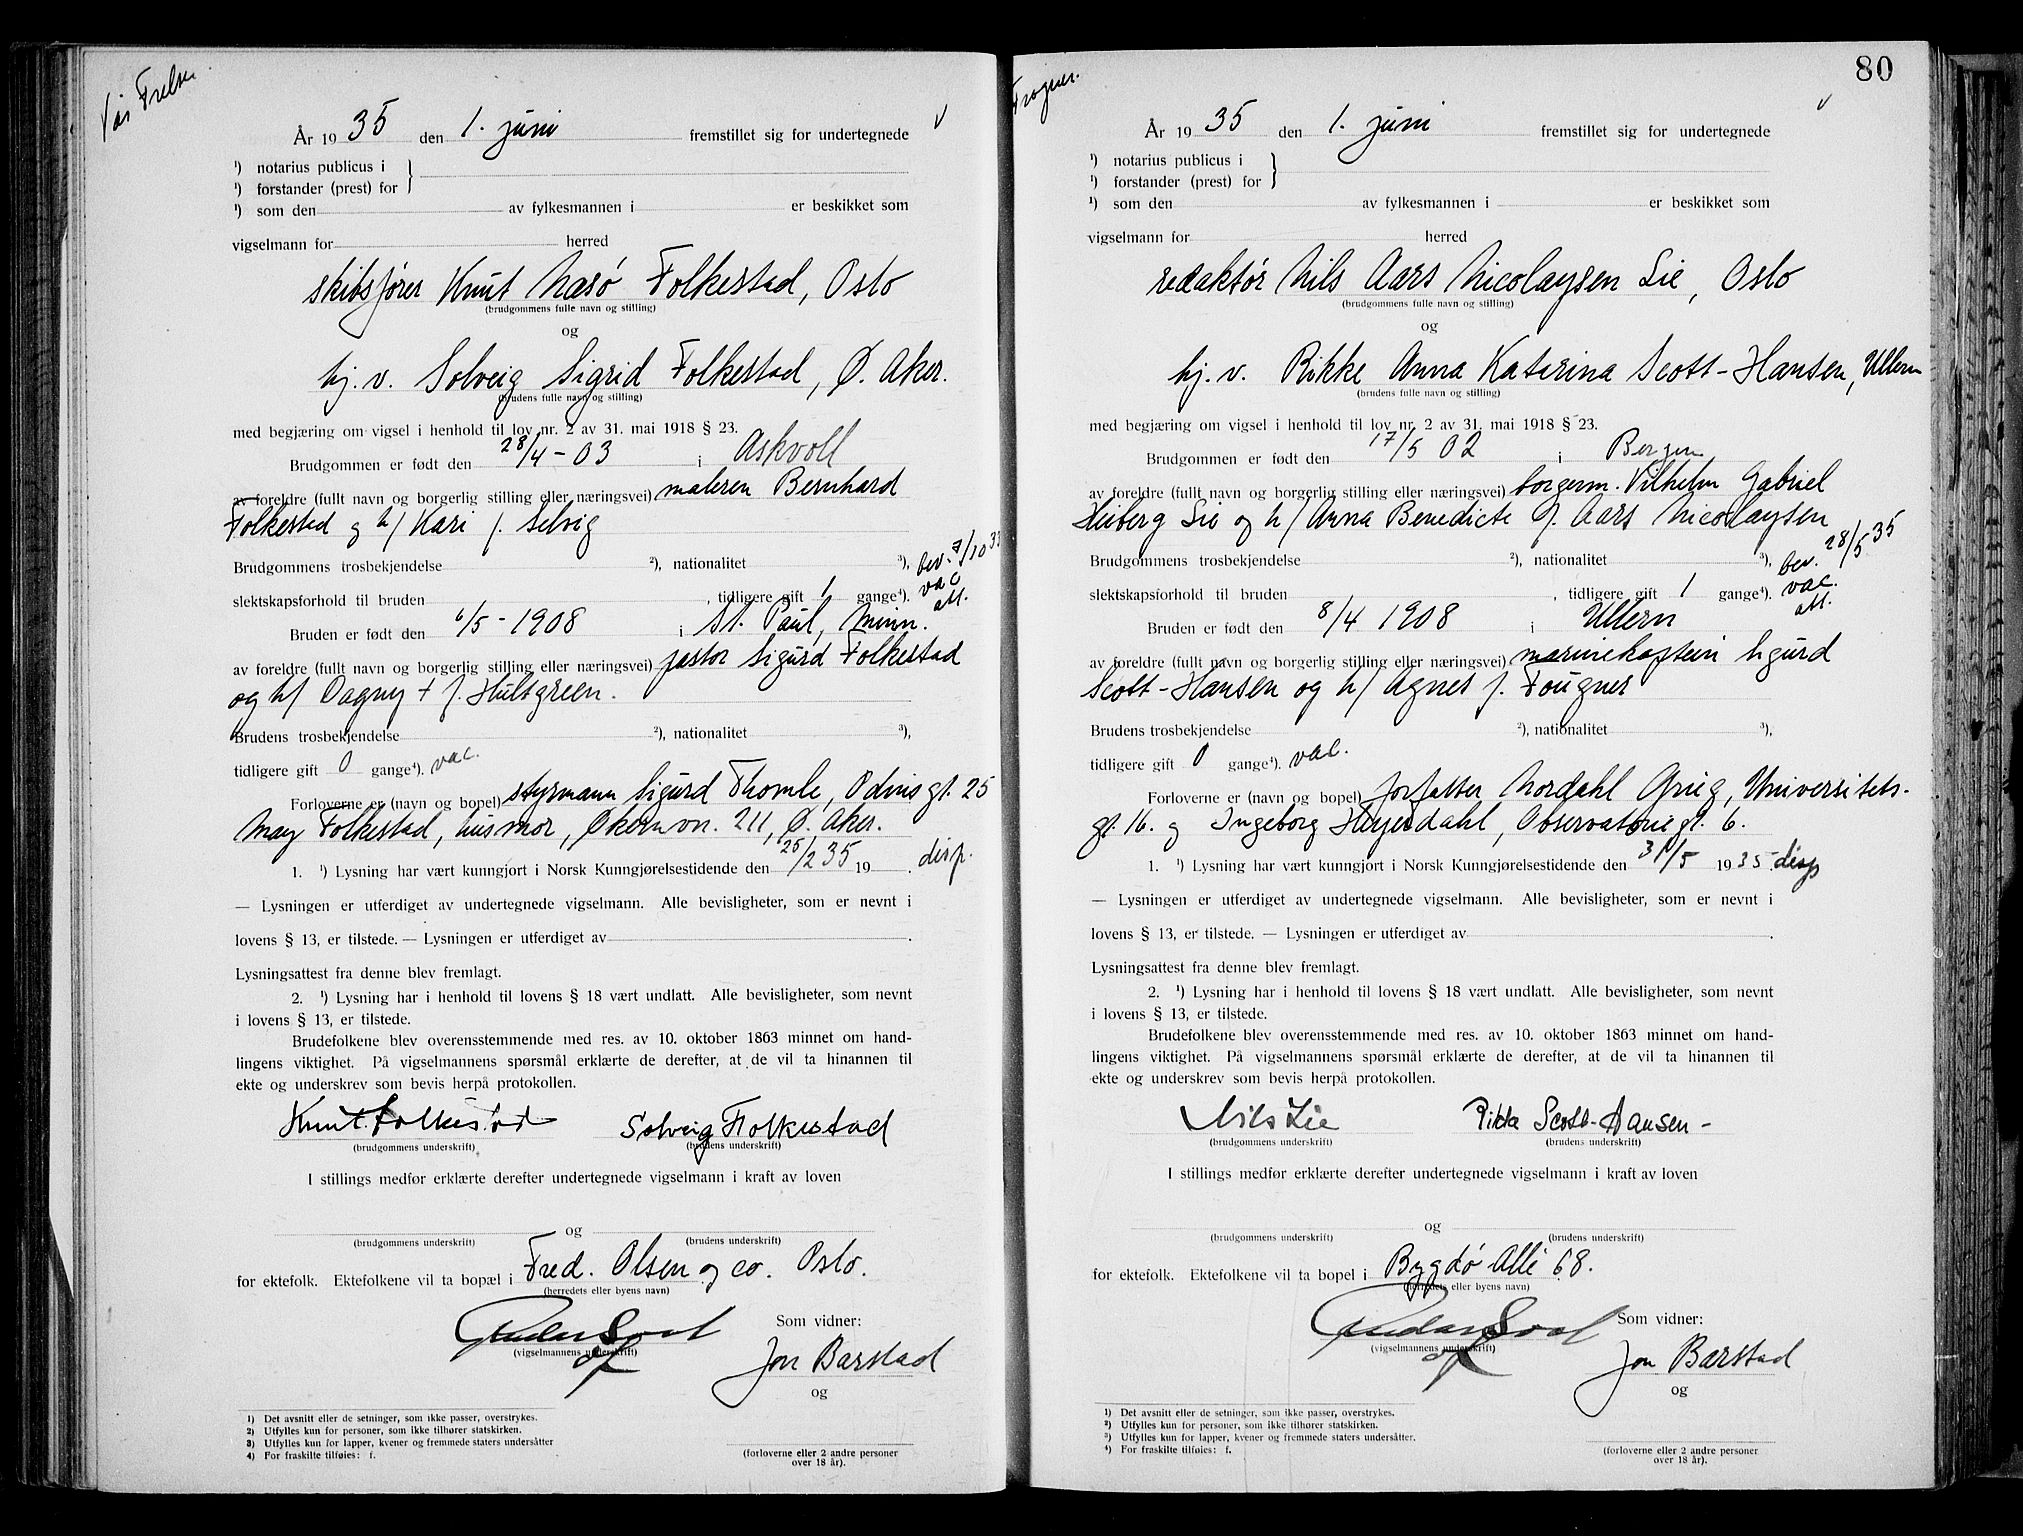 Vår Frelse
År 1935 den 1. juni fremstillet sig for undertegnede
¹) notarius publicus i
¹) forstander (prest) for
¹) som den av fylkesmannen i er beskikket som
vigselmann for herred
skibsfører Knut Næsø Folkestad, Oslo
(brudgommens fulle navn og stilling)
og
hj. v. Solveig Sigrid Folkestad, Ø. Aker.
(brudens fulle navn og stilling)
med begjæring om vigsel i henhold til lov nr. 2 av 31. mai 1918 § 23.
Brudgommen er født den 28/4 - 03 i Askvoll
av foreldre (fullt navn og borgerlig stilling eller næringsvei) maleren Bernhard
Folkestad og h/ Kari f. Selvig
Brudgommens trosbekjendelse ²), nationalitet ³), bev. 7/10
slektskapsforhold til bruden , tidligere gift 1 gange⁴). vac
att.
Bruden er født den 6/5 - 1908 i St. Paul, Minn.
av foreldre (fullt navn og borgerlig stilling eller næringsvei) pastor Sigurd Folkestad
og h/ Dagny f. Hultgreen.
Brudens trosbekjendelse ²), nationalitet ³),
tidligere gift 0 gange⁴). vac.
Forloverne er (navn og bopel) styrmann Sigurd Thomle, Odins gt. 25
May Folkestad, husmor, Økernvn. 211, Ø. Aker.
1. ¹) Lysning har vært kunngjort i Norsk Kunngjørelsestidende den 25/2 35 19 . disp.
— Lysningen er utferdiget av undertegnede vigselmann. Alle bevisligheter, som er nevnt i
lovens § 13, er tilstede. — Lysningen er utferdiget av .
Lysningsattest fra denne blev fremlagt.
2. ¹) Lysning har i henhold til lovens § 18 vært undlatt. Alle bevisligheter, som nevnt
i lovens § 13, er tilstede.
Brudefolkene blev overensstemmende med res. av 10. oktober 1863 minnet om hand-
lingens viktighet. På vigselmannens spørsmål erklærte de derefter, at de vil ta hinannen til
ekte og underskrev som bevis herpå protokollen.
Knut Folkestad Solveig Folkestad
(brudgommens underskrift) (brudens underskrift)
I stillings medfør erklærte derefter undertegnede vigselmann i kraft av loven
og
(brudgommens underskrift) (brudens underskrift)
for ektefolk. Ektefolkene vil ta bopæl i Fred. Olsen og co. Oslo.
(herredets eller byens navn)
Som vidner:
(vigselmannens underskrift)
Jon Barstad
og
1) Det avsnitt eller de setninger, som ikke passer, overstrykes.
2) Utfylles kun for personer, som ikke tilhører statskirken.
3) Utfylles kun for lapper, kvener og fremmede staters undersåtter
4) For fraskilte tilføies: f.
(forloverne eller 2 andre personer
over 18 år).
80
Frogner.
År 1935 den 1. juni fremstillet sig for undertegnede
¹) notarius publicus i
¹) forstander (prest) for
¹) som den av fylkesmannen i er beskikket som
vigselmann for herred
redaktør Nils Aars Nicolaysen Lie, Oslo
(brudgommens fulle navn og stilling)
og
hj. v. Rikke Anna Katarina Scott-Hansen, Ullern
(brudens fulle navn og stilling)
med begjæring om vigsel i henhold til lov nr. 2 av 31. mai 1918 § 23.
Brudgommen er født den 17/5 02 i Bergen
av foreldre (fullt navn og borgerlig stilling eller næringsvei) borgerm. Vilhelm Gabriel
Heiberg Lie og h/ Anna Benedicte f. Aars Nicolaysen
Brudgommens trosbekjendelse ²), nationalitet ³), bev. 28/5 35
slektskapsforhold til bruden , tidligere gift 1 gange⁴). vac.
att.
Bruden er født den 8/4 1908 i Ullern
av foreldre (fullt navn og borgerlig stilling eller næringsvei) marinekaptein Sigurd
Scott-Hansen og h/ Agnes f. Fougner
Brudens trosbekjendelse ²), nationalitet ³),
tidligere gift 0 gange⁴). vac.
Forloverne er (navn og bopel) forfatter Nordahl Grieg, Universitets-
gt. 16. og Ingeborg Heyerdahl, Observatorie gt. 6.
1. ¹) Lysning har vært kunngjort i Norsk Kunngjørelsestidende den 31/5 1935. disp
— Lysningen er utferdiget av undertegnede vigselmann. Alle bevisligheter, som er nevnt i
lovens § 13, er tilstede. — Lysningen er utferdiget av .
Lysningsattest fra denne blev fremlagt.
2. ¹) Lysning har i henhold til lovens § 18 vært undlatt. Alle bevisligheter, som nevnt
i lovens § 13, er tilstede.
Brudefolkene blev overensstemmende med res. av 10. oktober 1863 minnet om hand-
lingens viktighet. På vigselmannens spørsmål erklærte de derefter, at de vil ta hinannen til
ekte og underskrev som bevis herpå protokollen.
Nils Lie Rikka Scott-Hansen -
(brudgommens underskrift) (brudens underskrift)
I stillings medfør erklærte derefter undertegnede vigselmann i kraft av loven
og
(brudgommens underskrift) (brudens underskrift)
for ektefolk. Ektefolkene vil ta bopel i Bygdø Allé 68.
(herredets eller byens navn)
Som vidner:
(vigselmannens underskrift)
Jon Barstad
og
1) Det avsnitt eller de setninger, som ikke passer, overstrykes.
2) Utfylles kun for personer, som ikke tilhører statskirken.
3) Utfylles kun for lapper, kvener og fremmede staters undersåtter.
4) For fraskilte tilføies: f.
(forloverne eller 2 andre personer
over 18 år).